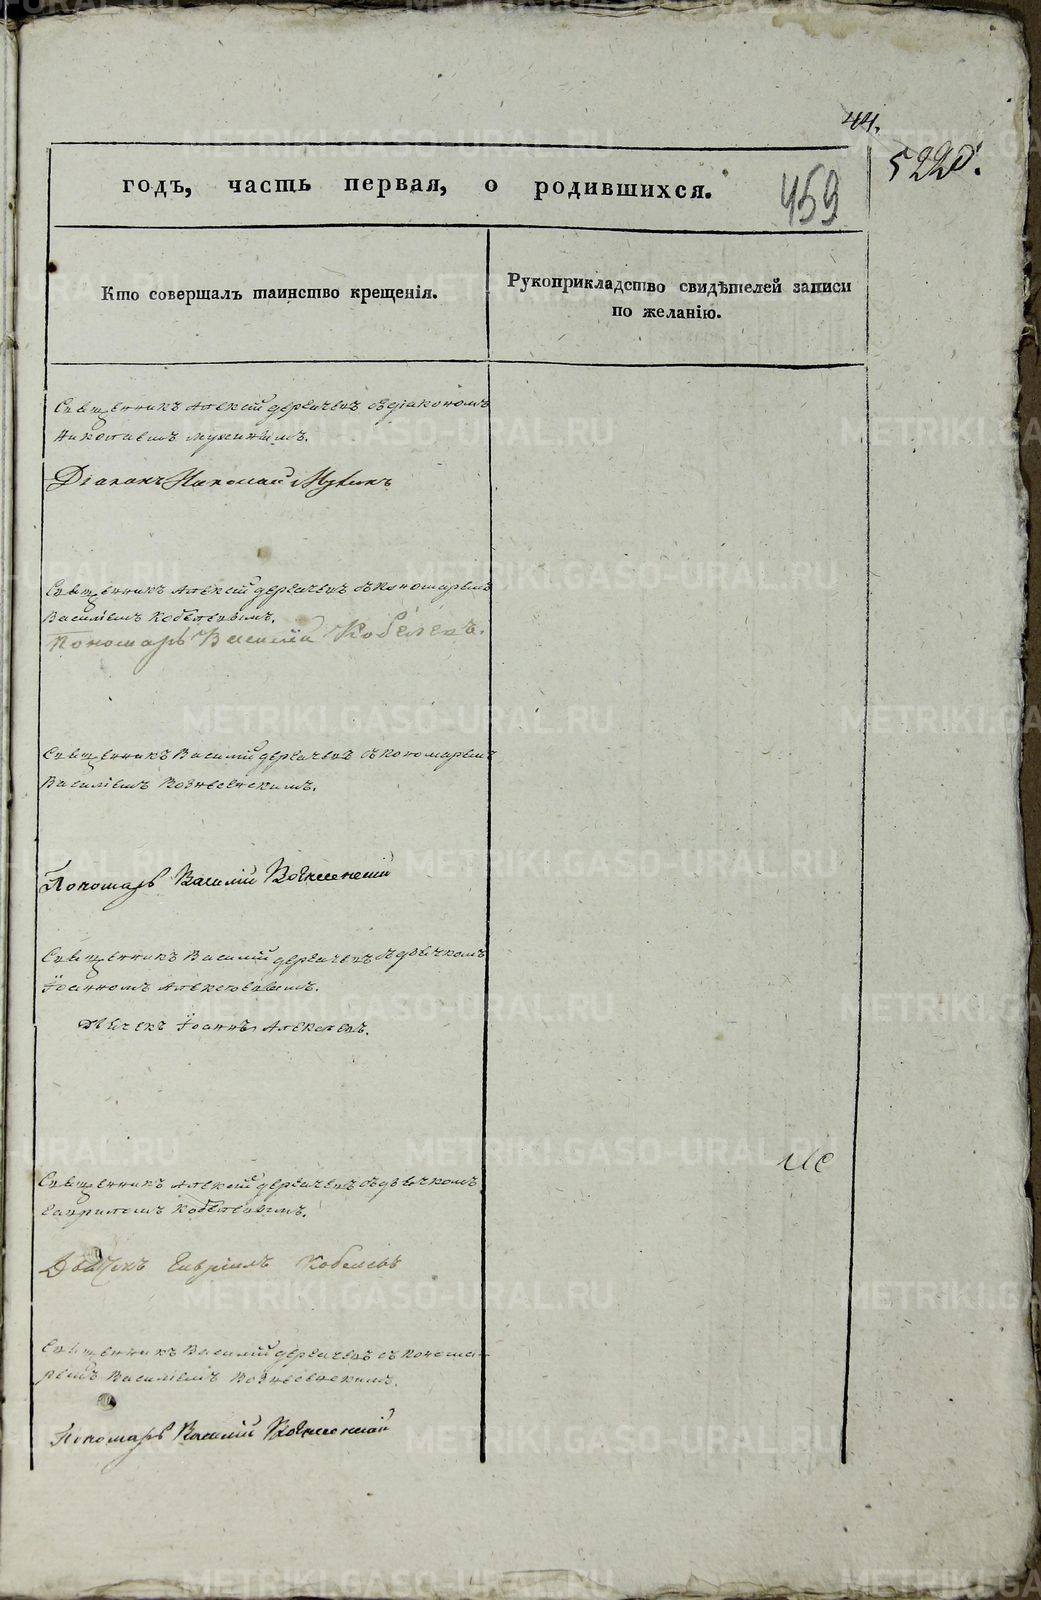 44.
5220.
годъ, часть первая, о родившихся.
459
Кто совершалъ таинство крещенія.
Рукоприкладство свидѣтелей записи
по желанію.
Священникъ Алексій Дергачевъ съ діакономъ
Николаемъ Мухинымъ.
Діаконъ Николай Мухинъ
Священникъ Алексій Дергачевъ съ пономаремъ
Василіемъ Кобелевымъ.
Пономарь Василій Кобелевъ.
Священникъ Василій Дергачевъ съ пономаремъ
Василіемъ Вознесенскимъ.
Пономарь Василій Вознесенскій
Священникъ Василій Дергачевъ съ дьячкомъ
Іоанномъ Алексѣевымъ.
Дьячекъ Іоаннъ Алексѣевъ.
Священникъ Алексій Дергачевъ съ дьячкомъ
Гавріиломъ Кобелевымъ.
Дьячекъ Гавріилъ Кобелевъ
Священникъ Василій Дергачевъ съ понома-
ремъ Василіемъ Вознесенскимъ.
Пономарь Василій Вознесенскій
METRIKI.GASO-URAL.RU